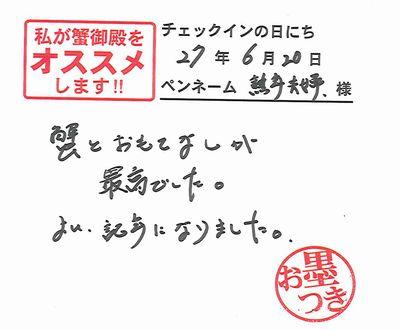 私が蟹御殿を
オススメ
します!!
チェックインの日にち
27年6月20日
ペンネーム 様
蟹とおもてなしが
最高でした。
よい記念になりました。
お墨つき